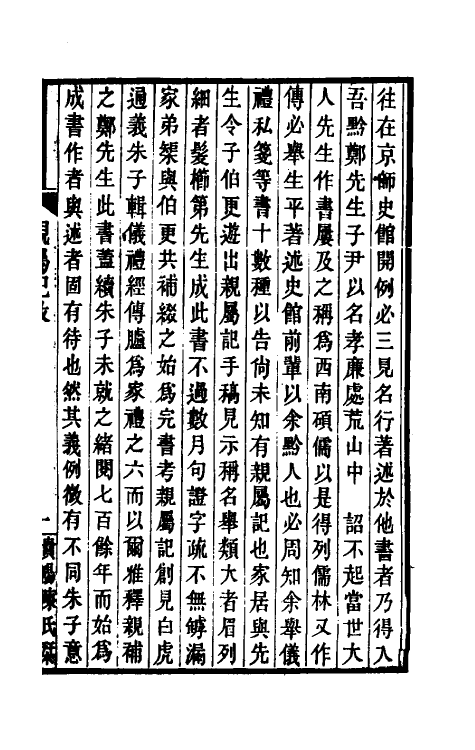 往在京師史館開例必三見名行著述於他書者乃得入
吾黔鄭先生子尹以名孝廉處荒山中　詔不起當世大
人先生作書屢及之稱爲西南碩儒以是得列儒林又作
傳必舉生平著述史館前輩以余黔人也必周知余舉儀
禮私箋等書十數種以告尙未知有親屬記也家居與先
生令子伯更遊出親屬記手稿見示稱名舉類大者眉列
細者髮櫛第先生成此書不過數月句證字疏不無罅漏
家弟榘與伯更共補綴之始爲完書考親屬記創見白虎
通義朱子輯儀禮經傳臚爲家禮之六而以爾雅釋親補
之鄭先生此書葢續朱子未就之緒閱七百餘年而始爲
成書作者與述者固有待也然其義例微有不同朱子意
親屬記敘
一
貴陽陳氏栞